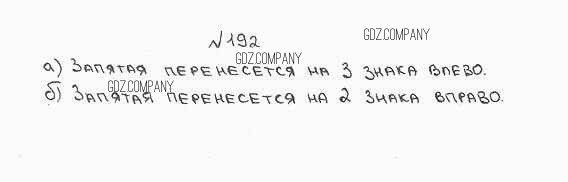 №192
GDZ.COMPANY
GDZ.COMPANY
а) Запятая перенесется на 3 знака влево.
GDZ.COMPANY
б) Запятая перенесется на 2 знака вправо.